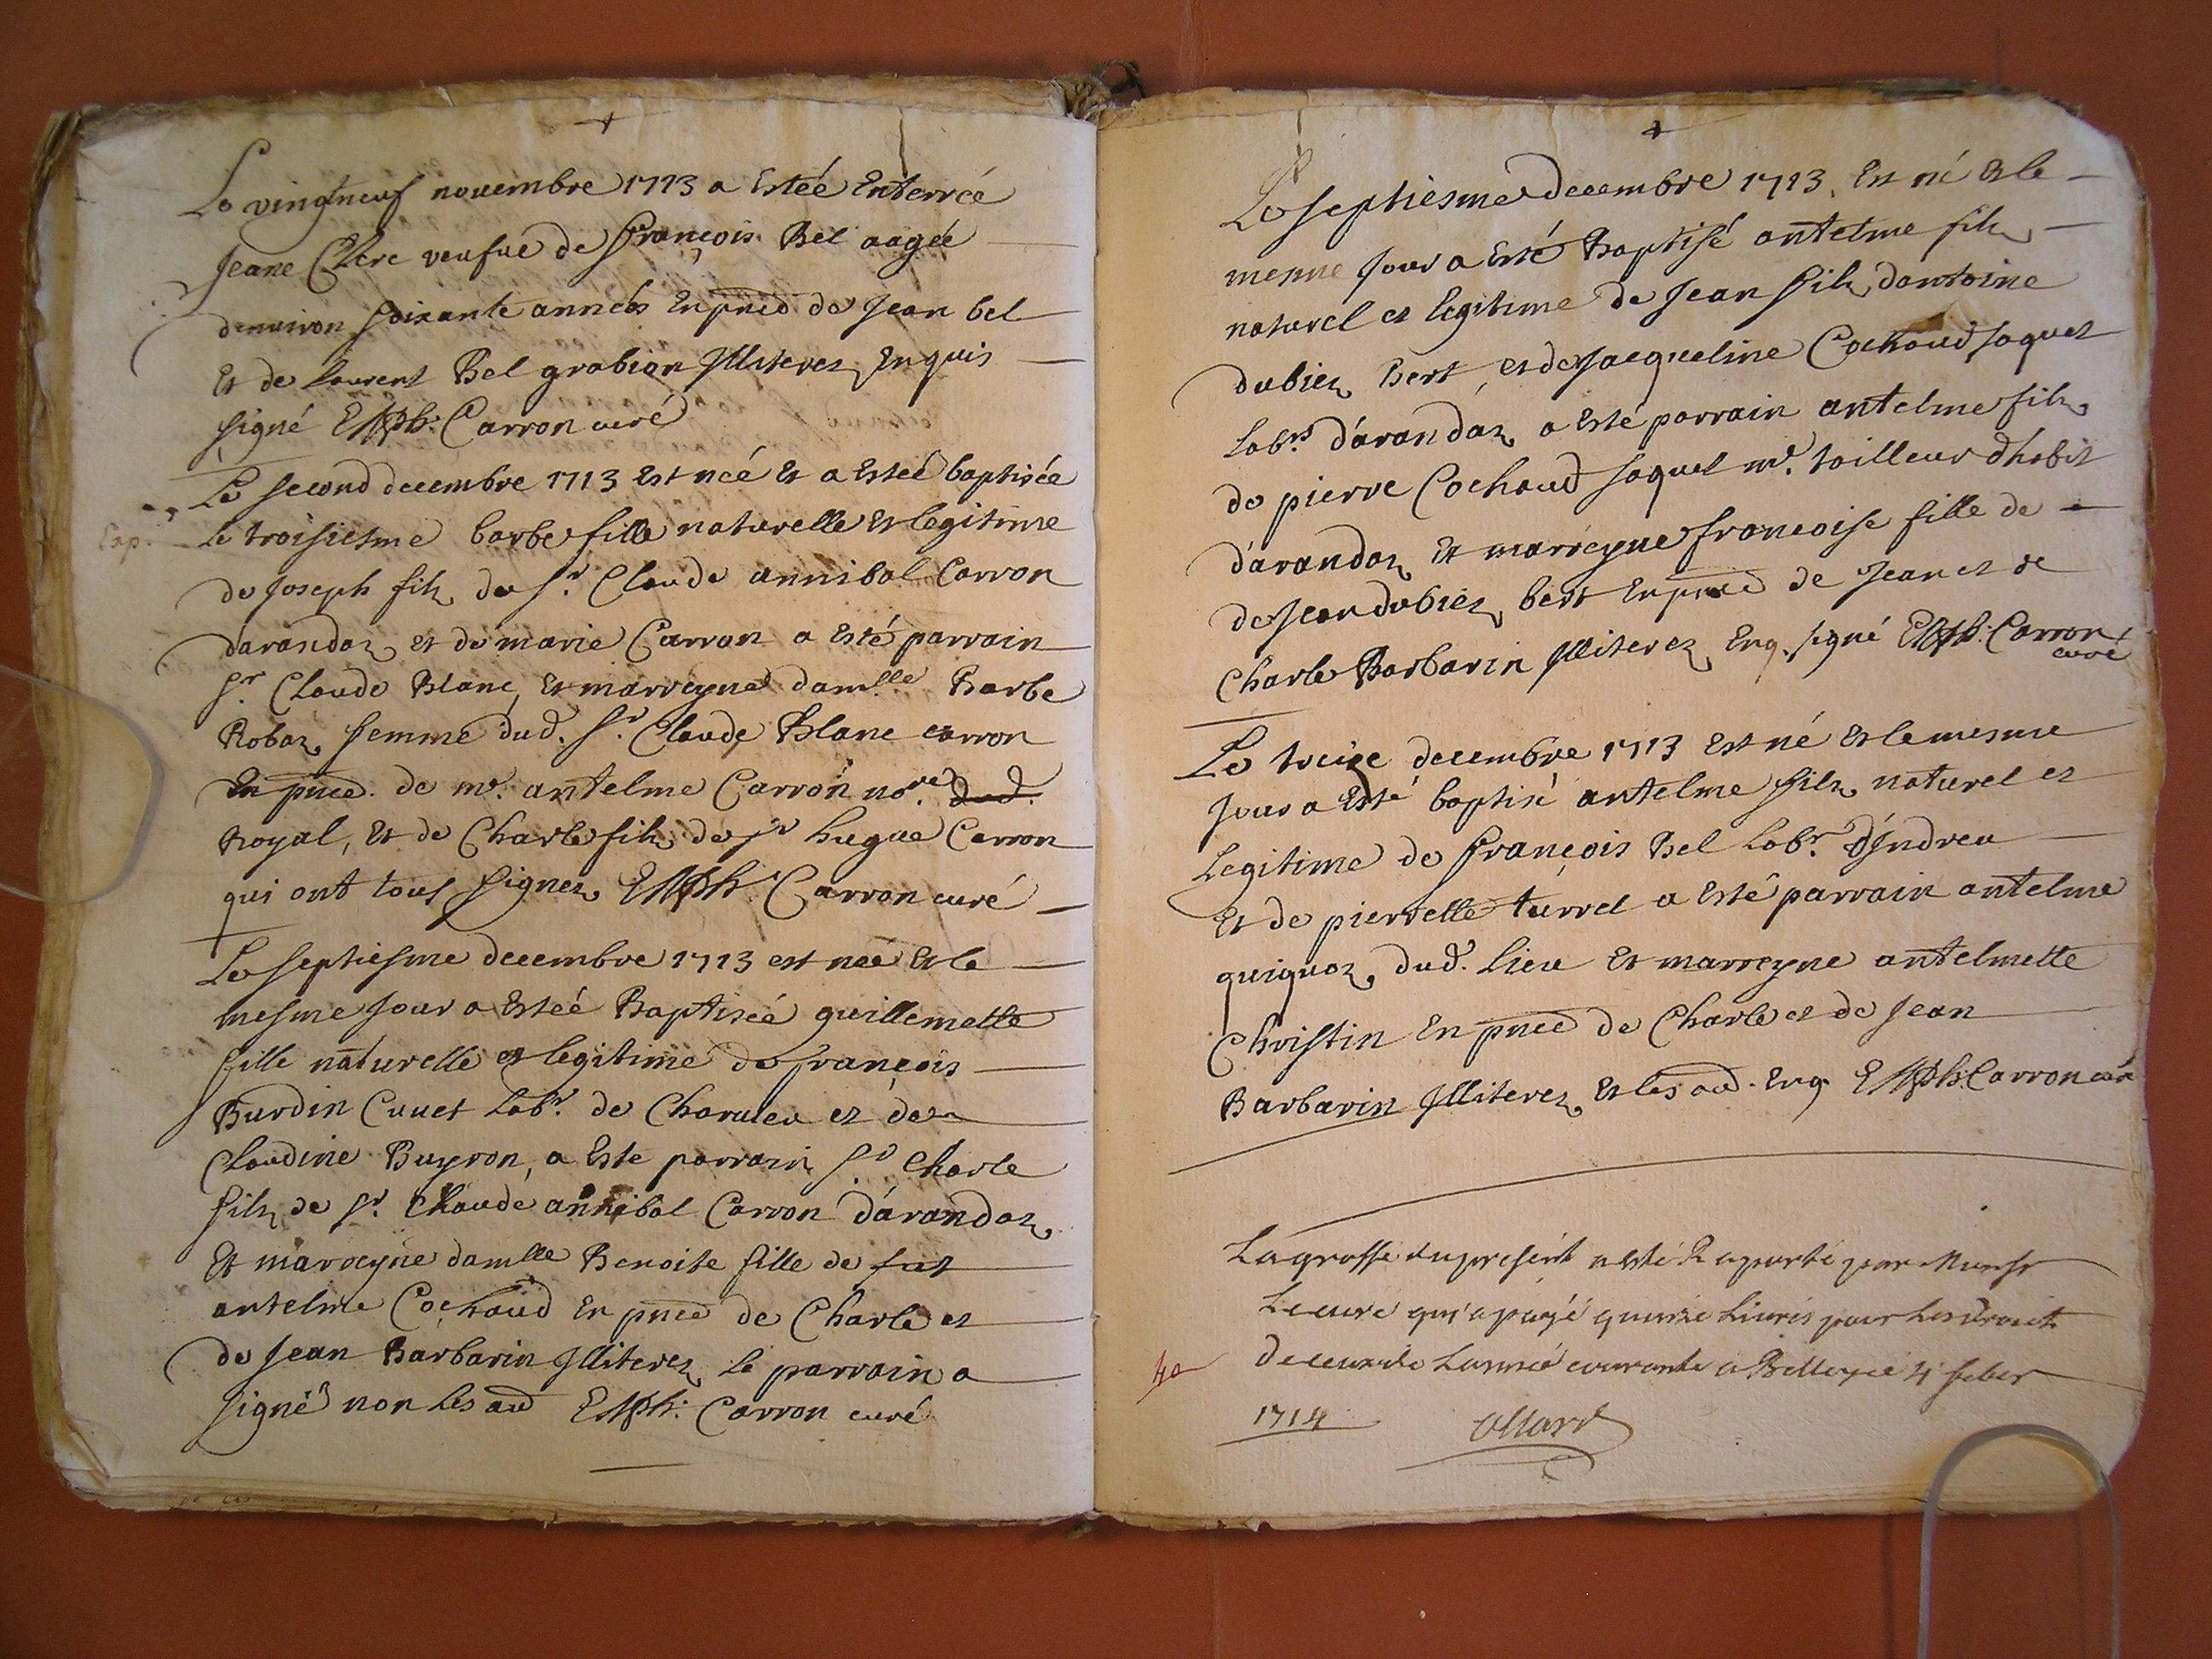 Le vingtneuf nouembre 1713 a Estéé Enterréé
Jeane Clerc veufue de françois Bel aagéé
denuiron soixante annéés En pnce de Jean bel
Et de laurent Bel grabian Illiterez Enquis
signé Carron curé
Le second decembre 1713 est néé Et a Estéé baptiséé
le troisiesme barbe fille naturelle et legitime
de Joseph filz de Sr. Claude annibal Carron
darandaz et de marie Carron a esté parrain
Sr. Claude Blanc, Et marreyne damlle Barbe
Robaz femme dud. Sr. Claude Blanc carron
En pnce. de me. antelme Carron nore. dud.
Royal, Et de Charle filz de Sr hugue Carron
qui ont tous signez Carron curé
Le septiesme decembre 1713 est néé Et le
mesme Jour a Estéé Baptiséé guillemette
fille naturelle et legitime de françois
Burdin Cuuet labr. de Charuieu et de
Claudine Buyron, a Este parrain Sr Charle
filz de Sr. Claude annibal Carron d'arandaz
Et marreyne damlle Benoite fille de fut
antelme Cochoud En pnce de Charle et
de Jean Barbarin Illiterez le parrain a
signé non les aud Carron curé
Le septiesme decembre 1713. Est né Et le
mesme Jour a Esté Baptisé antelme filz
naturel et legitime de Jean filz dantoine
dubiez bert, et de Jacqueline Cochoud Jaquet
labrs. d'arandaz a Esté parrain antelme filz
de pierre Cochoud Jaquet me. tailleur d'habit
d'arandaz Et marreyne francoise fille de
de Jean dubiez bert En pnce de Jean et de
Charle Barbarin Illiterez Enq. signé Carron
curé
Le treize decembre 1713 Est né et le mesme
Jour a Esté baptisé antelme filz naturel et
Legitime de françois Bel labr. d'Indreu
Et de pierrette turrel a Esté parrain antelme
guiguaz dud. lieu Et marreyne antelmette
Christin En pnce de Charle et de Jean
Barbarin Illiterez Et les aud. Enq. Carron curé
La grosse du present a esté Raporté par Monsr
Le curé qui a payé quinze Liures pour Les droits
de Lannéé courante a Belleyce 4 feber
1714 Allard
40